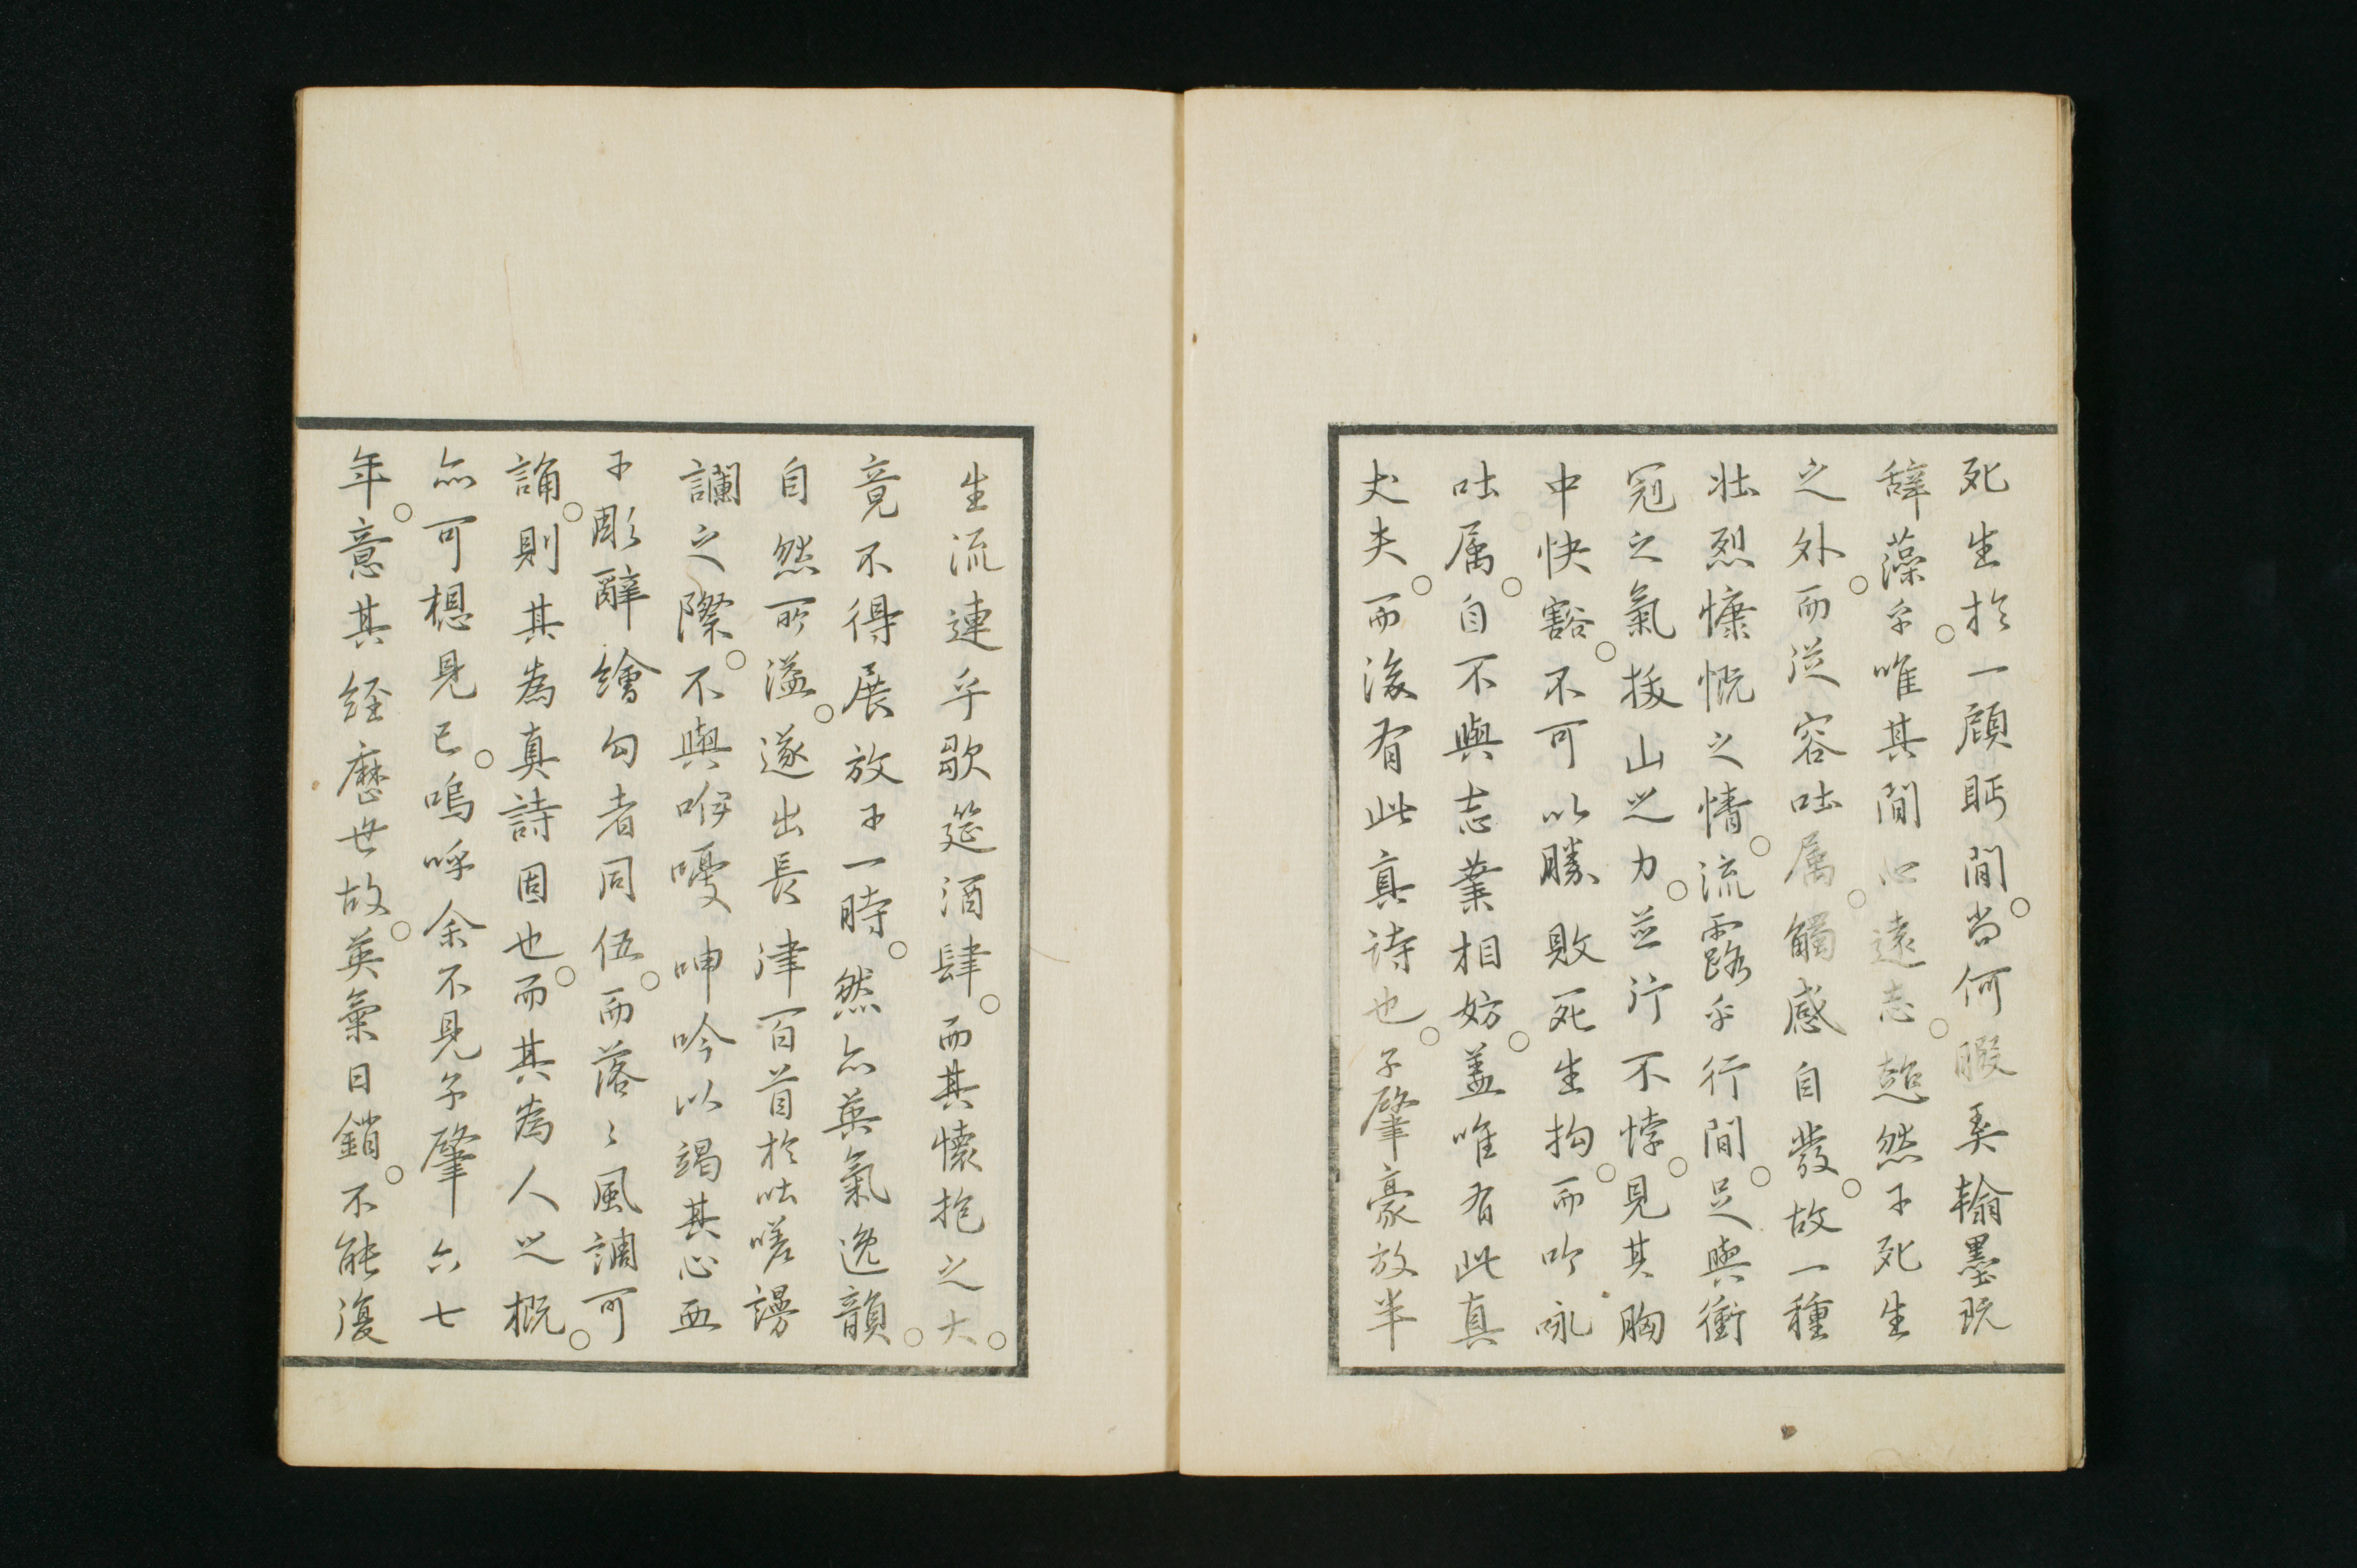 死生於一顧眄間。尚何暇弄翰墨玩
辭藻乎。唯其間心遠志。超然于死生
之外。而從容吐属。觸感自發。故一種
壮烈慷慨之情。流露乎行間。足與衝
冠之氣拔山之力。並行不悖。見其胸
中快豁。不可以勝敗死生拘。而吟咏
吐属。自不與志業相妨。蓋唯有此真
丈夫。而後有此真詩也。子肇豪放半
生流連乎歌筵酒肆。而其懷抱之大。
竟不得展放于一時。然亦英氣逸韻。
自然所溢。遂出長律百首於咄嗟謾
讕之際。不與喉嚘呻吟以竭其心血
于彫辭繪句者同伍。而落々風調可
誦。則其為真詩固也。而其為人之概。
亦可想見已。嗚呼余不見子肇六七
年。意其経歴世故。英氣日銷。不能復